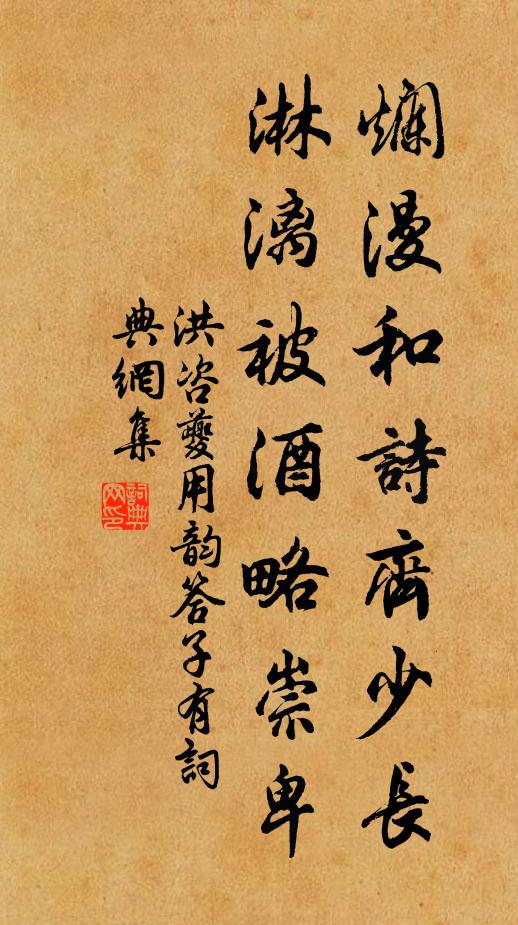 爛漫和詩齊少長
淋漓被酒略崇卑
洪咨夔用韵答子有詞
典網集
詞典
网印